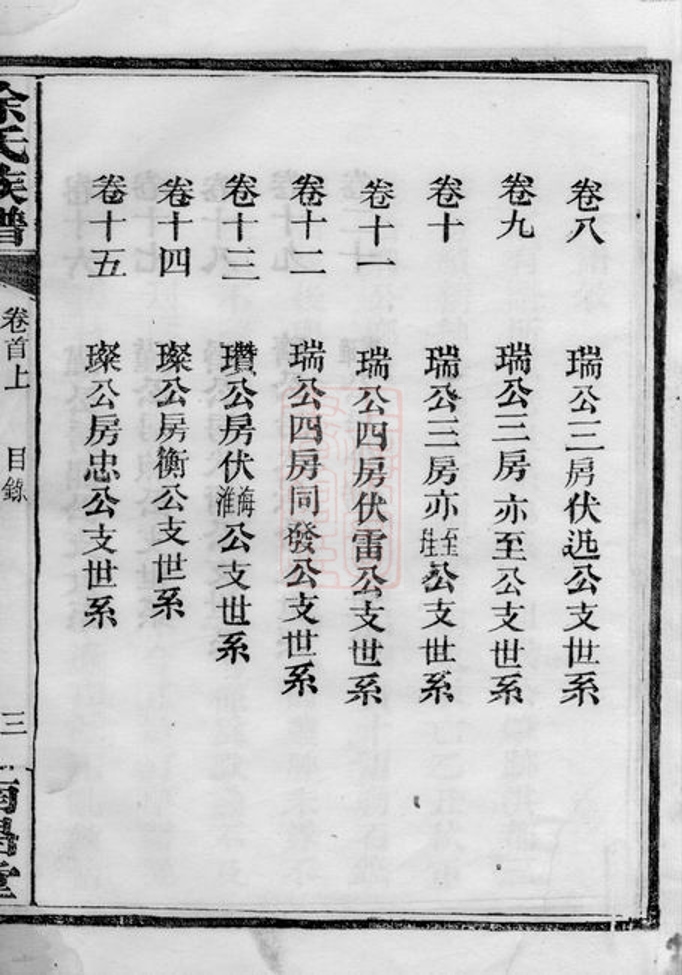 卷八 瑞公三房伏迯公支世系
卷九 瑞公三房亦至公支世系
卷十 瑞公三房亦至玨公支世系
卷十一 瑞公四房伏雷公支世系
卷十二 瑞公四房同發公支世系
卷十三 瓚公房伏海淮公支世系
卷十四 璨公房衡公支世系
卷十五 璨公房忠公支世系
余氏族譜 卷首上 目錄 三